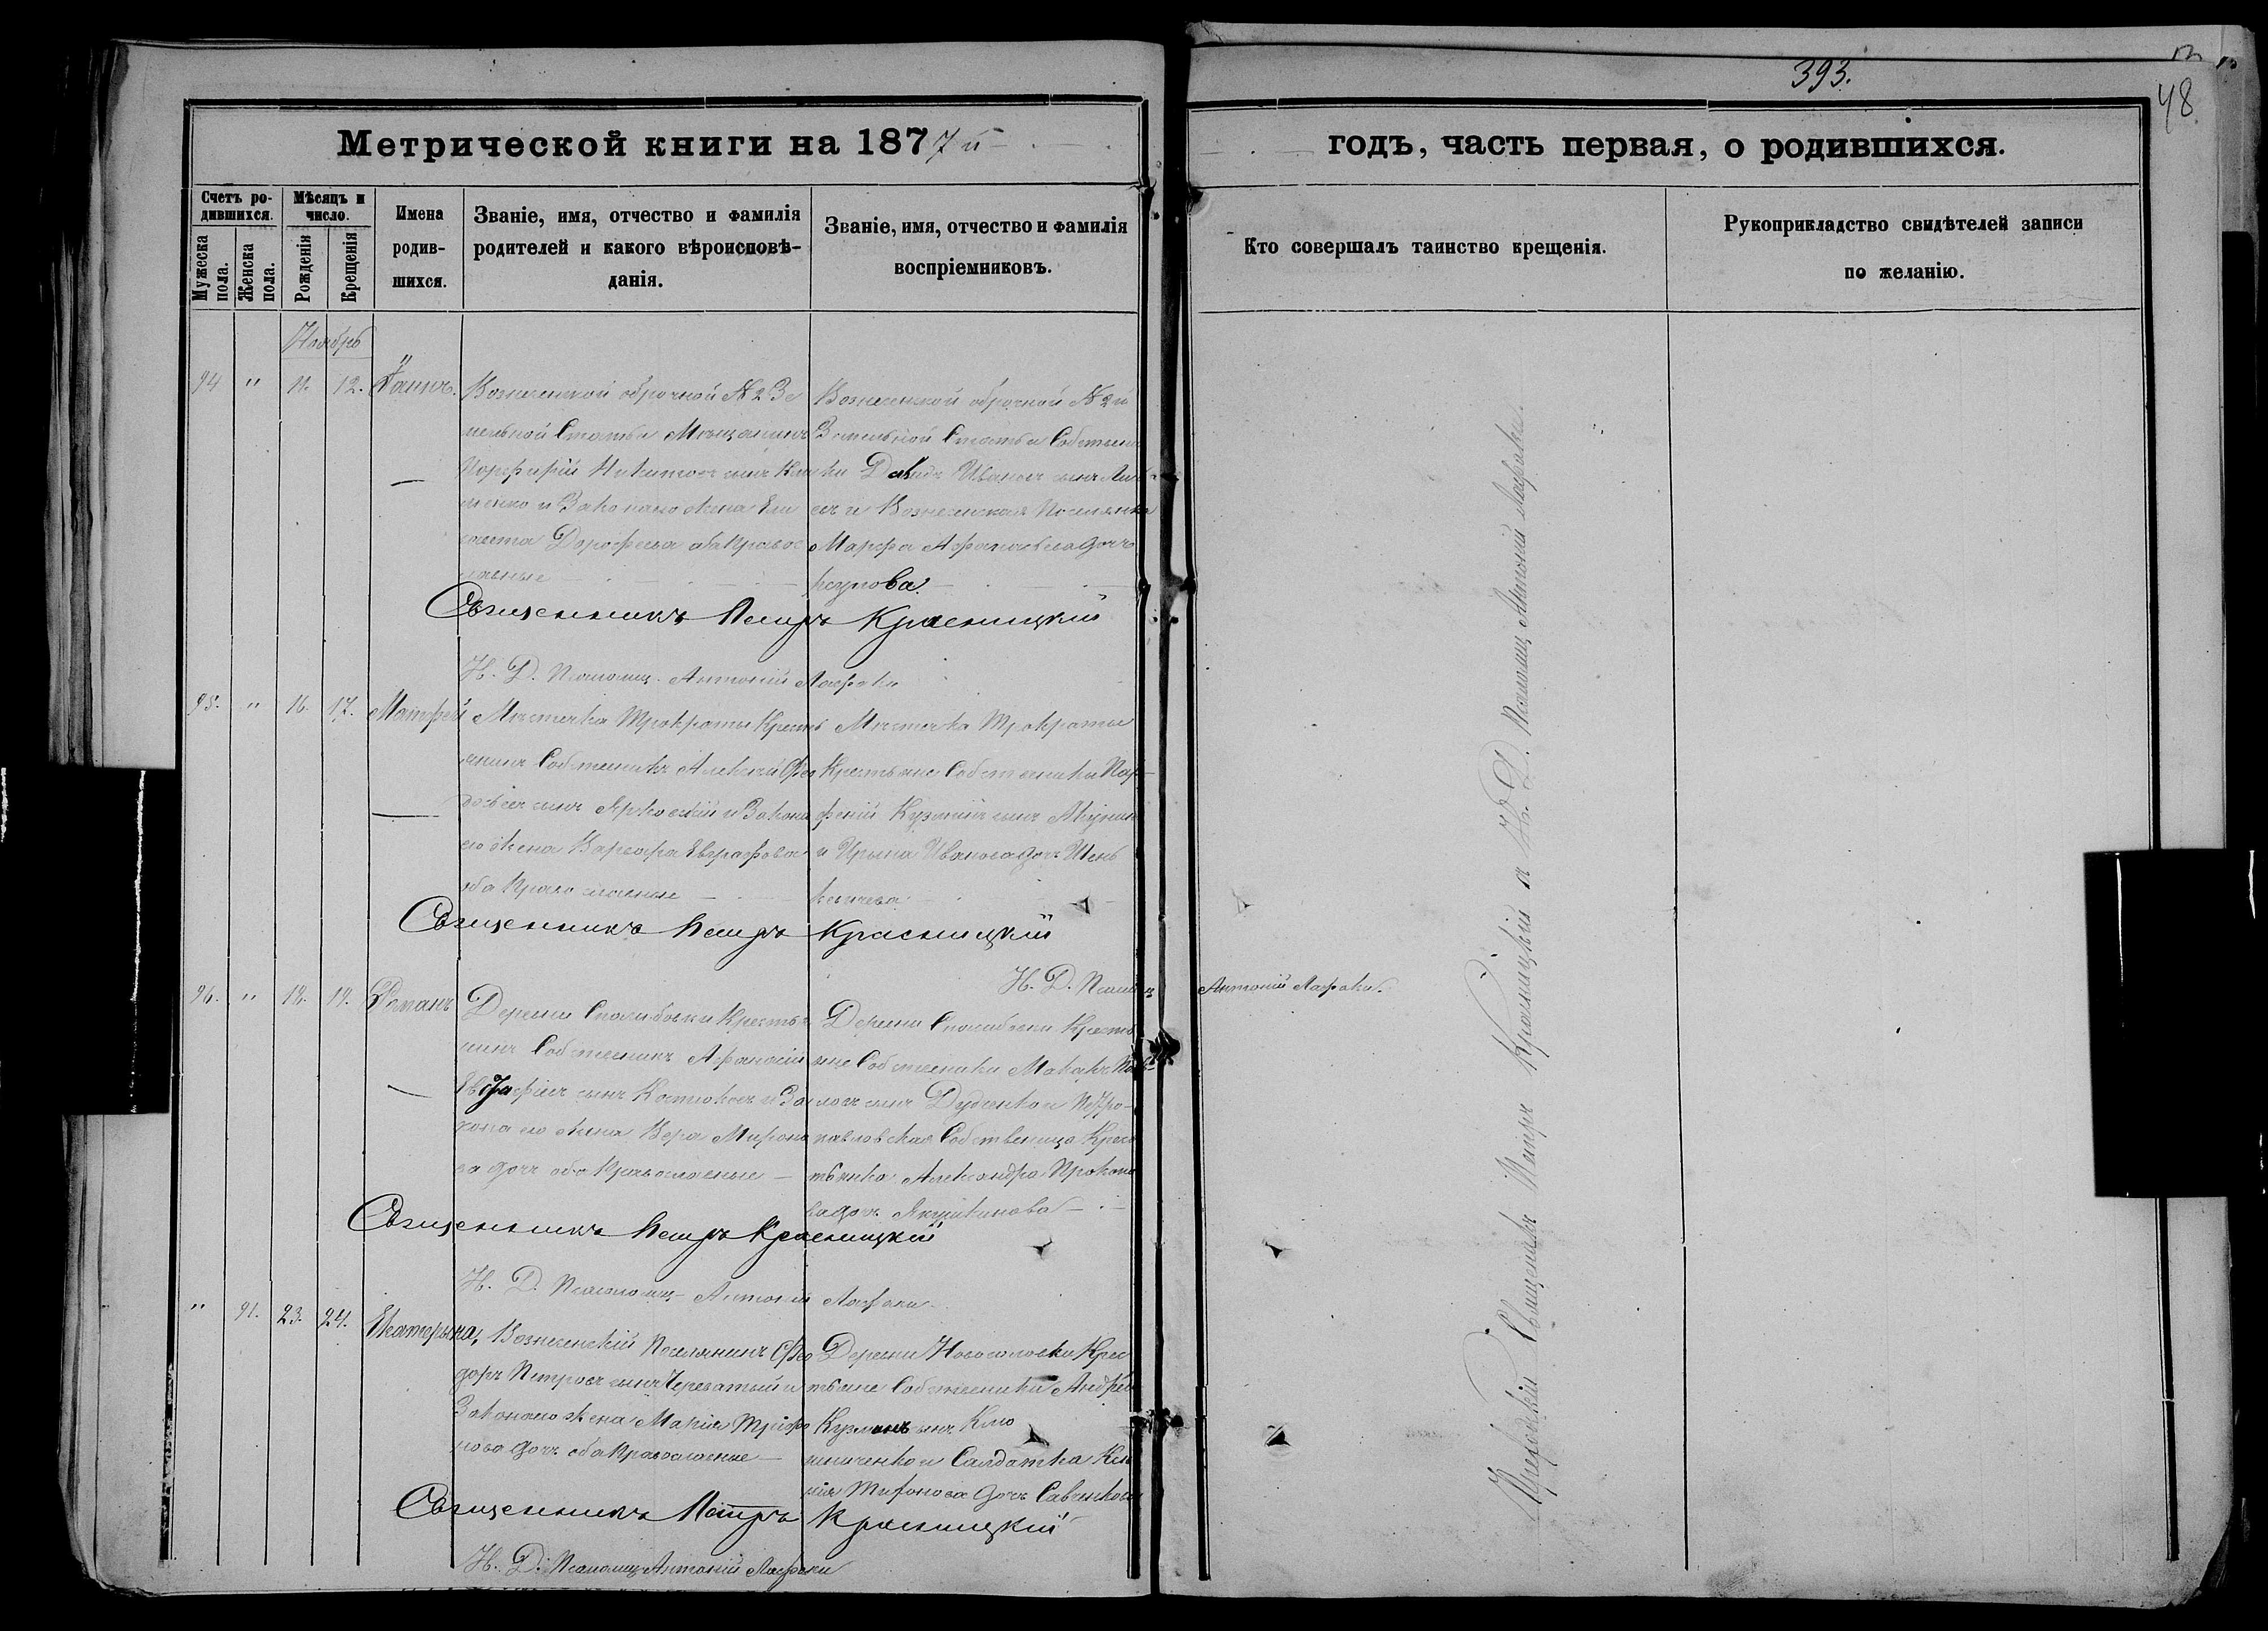 393.
48
Метрической книги на 1877й
годъ, часть первая, о родившихся.
Счетъ родившихся.
Мужеска пола.
Женска пола.
Мѣсяцъ и число.
Рожденія
Крещенія
Имена родившихся.
Званіе, имя, отчество и фамилія родителей и какого вѣроисповѣданія.
Званіе, имя, отчество и фамилія воспріемниковъ.
Кто совершалъ таинство крещенія.
Рукоприкладство свидѣтелей записи по желанію.
Ноябрь
94 " 11. 12.
Вознесенской оброчной № 2 Зе
мельной Статьи Мещанинъ
Порфирій Никитовъ сынъ
и Законная жена Ели
савета Дорофеева оба Правос
лавные
Вознесенской оброчной № 2й
Земельной Статьи
Давидъ Ивановъ сынъ
и Вознесенская Поселянка
Марфа Афанасьева дочь
Священникъ Петръ Красницкій
Н. Д. Псаломщ. Антоній
95. " 16. 17. Матфей
Мѣстечка Трикраты Кресть
янинъ Собственникъ Алексѣй Фео
досіевъ сынъ и Законна
его жена Варвара Евграфова
оба Православные
Мѣстечка Трикраты
Крестьяне Собственники Пар
феній Кузминъ сынъ
и Ирына Иванова дочь Шень
Священникъ Петръ Красницкій
Н. Д. Псаломщ Антоній
96. " 18. 19. Романъ
Деревни Крестья
нинъ Собственникъ Афанасій
Евстафіевъ сынъ и За
кона его жена Вера Мироно
ва дочь оба Православные
Деревни Кресть
яне Собственники
сынъ Дудченко и Петро-
павловская Собственица Крес
тьянка Александра Прокопо
ва дочь Якушкинова
Священникъ Петръ Красницкій
Н. Д. Псаломщ Антоній
" 91. 23. 24. Екатерына,
Вознесенскій Поселянинъ Фео
доръ Петровъ сынъ Череватый и
Законная жена Марія Трифо
нова дочь оба Православные
Деревни Новоселовки Крес
тьяне Собственники Андрей
Кузминъ сынъ Кли
менченко и Салдатка Ксе
нія дочь Савченкова
Священникъ Петръ Красницкій
Н. Д. Псаломщ Антоній
Священникъ Петръ Красницкій и Н. Д. Псаломщ Антоній